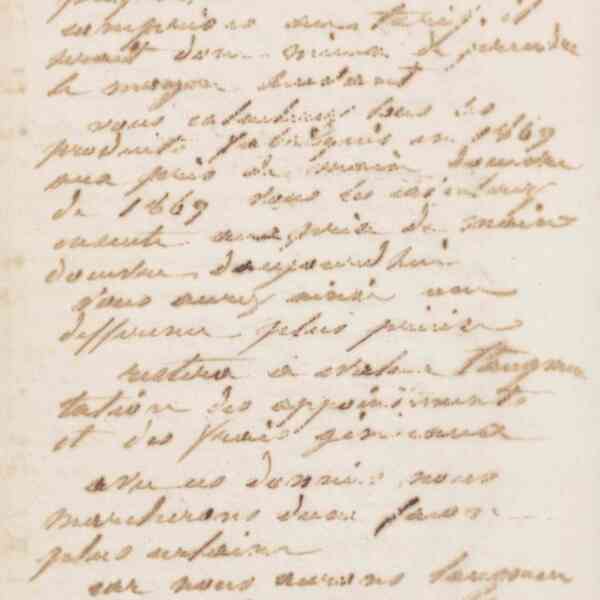 comprises au tarif. il
serait donc mieux de prendre
le moyen suivant
vous calculerez tous les
produits fabriqués en 1869
aux prix de main d'œuvre
de 1869 vous les calculerez
ensuite aux prix de main
d'œuvre d'aujourd'hui
vous aurez ainsi une
difference plus précise
restera à evaluer l'augmen
tation des appointements
et des frais généraux
avec ces données nous
marcherons d'une façon
plus certaine
car nous aurons l'augmen